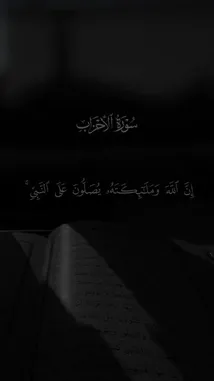 سُورَةُ الأَحْزَابِ
إِنَّ ٱللَّهَ وَمَلَـٰٓئِكَتَهُۥ يُصَلُّونَ عَلَى ٱلنَّبِىِّ ۚ